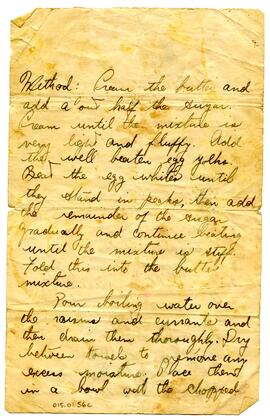 Method: Cream the butter and
add about half the sugar.
Cream until the mixture is
very light and fluffy. Add
the well beaten egg yolks.
Beat the egg whites until
they stand in peaks, then add
the remainder of the sugar
gradually and continue beating
until the mixture is stiff.
Fold this into the butter
mixture.
Pour boiling water over
the raisins and currants and
then drain them thoroughly. Dry
between towels to remove any
excess moisture. Place them
in a bowl with the chopped
015.01.56c